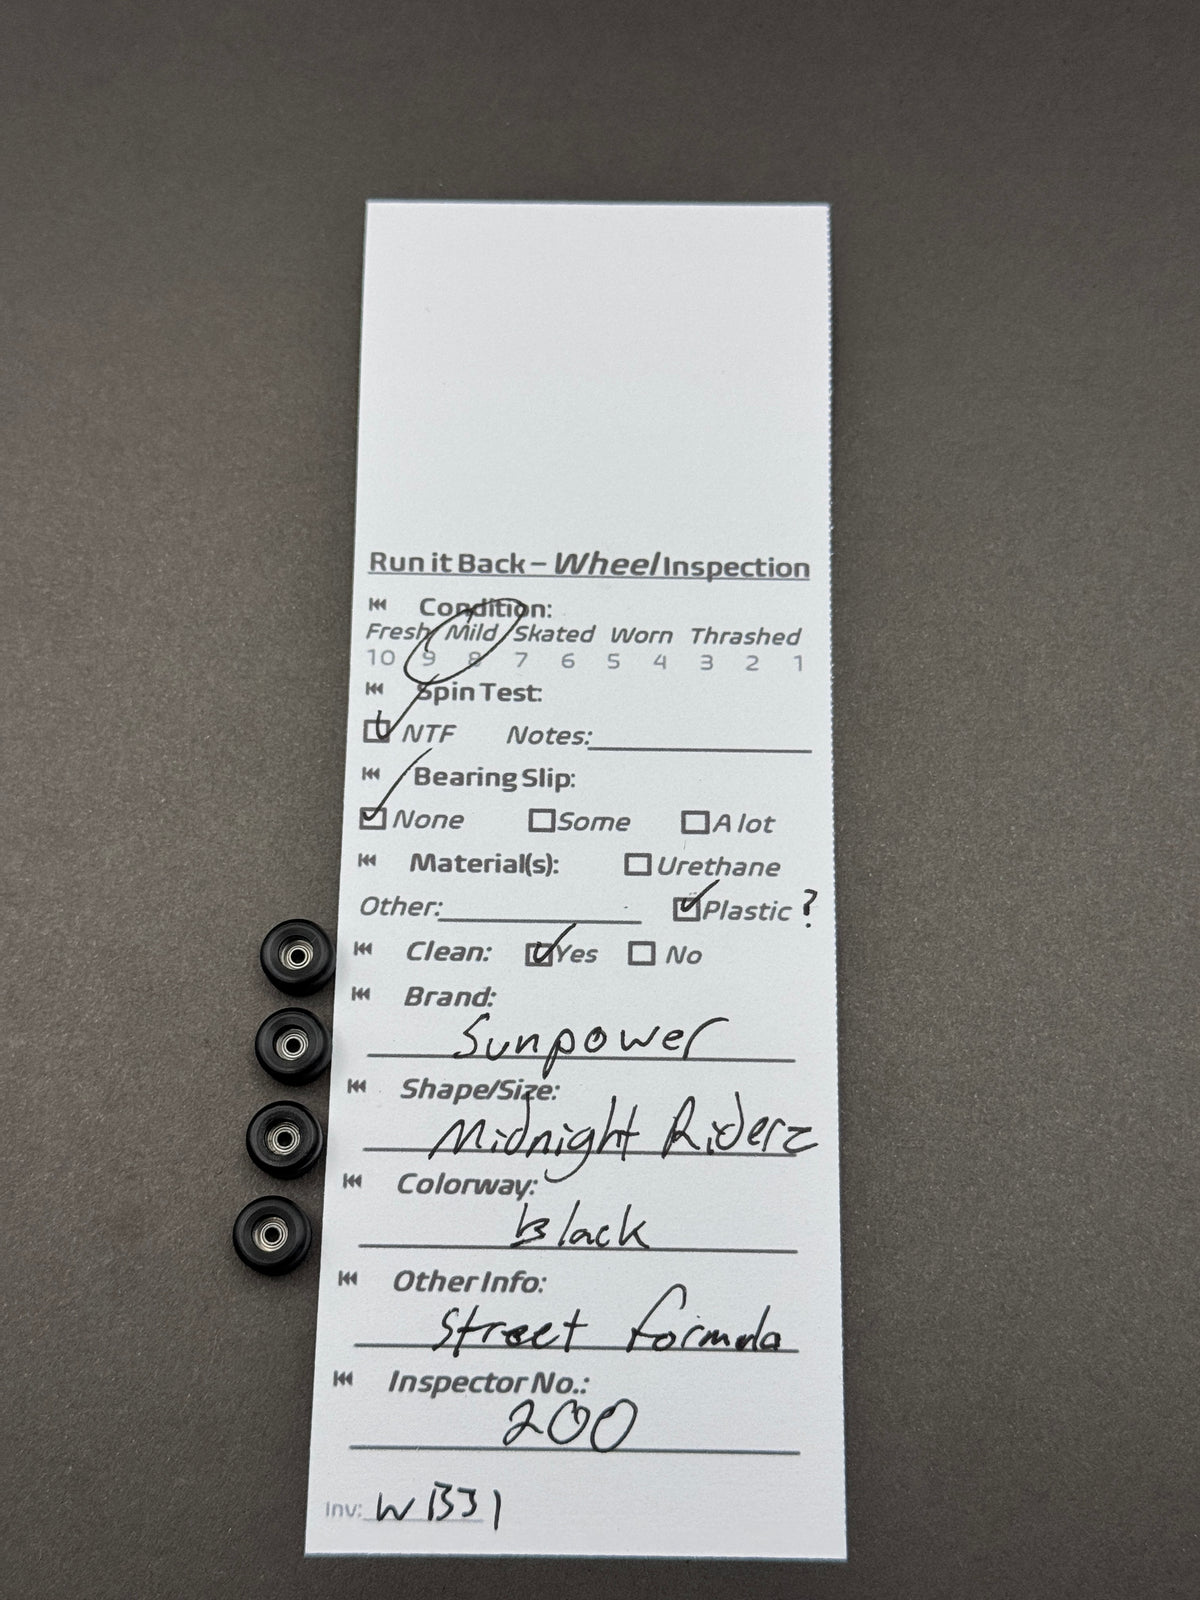 Run it Back – Wheel Inspection
Condition:
Fresh Mild Skated Worn Thrashed
10 9 8 7 6 5 4 3 2 1
Spin Test:
NTF Notes:
Bearing Slip:
None Some A lot
Material(s): Urethane
Other: Plastic ?
Clean: Yes No
Brand:
Sunpower
Shape/Size:
Midnight Riderz
Colorway:
Black
Other Info:
Street formula
Inspector No.:
200
Inv: W1331